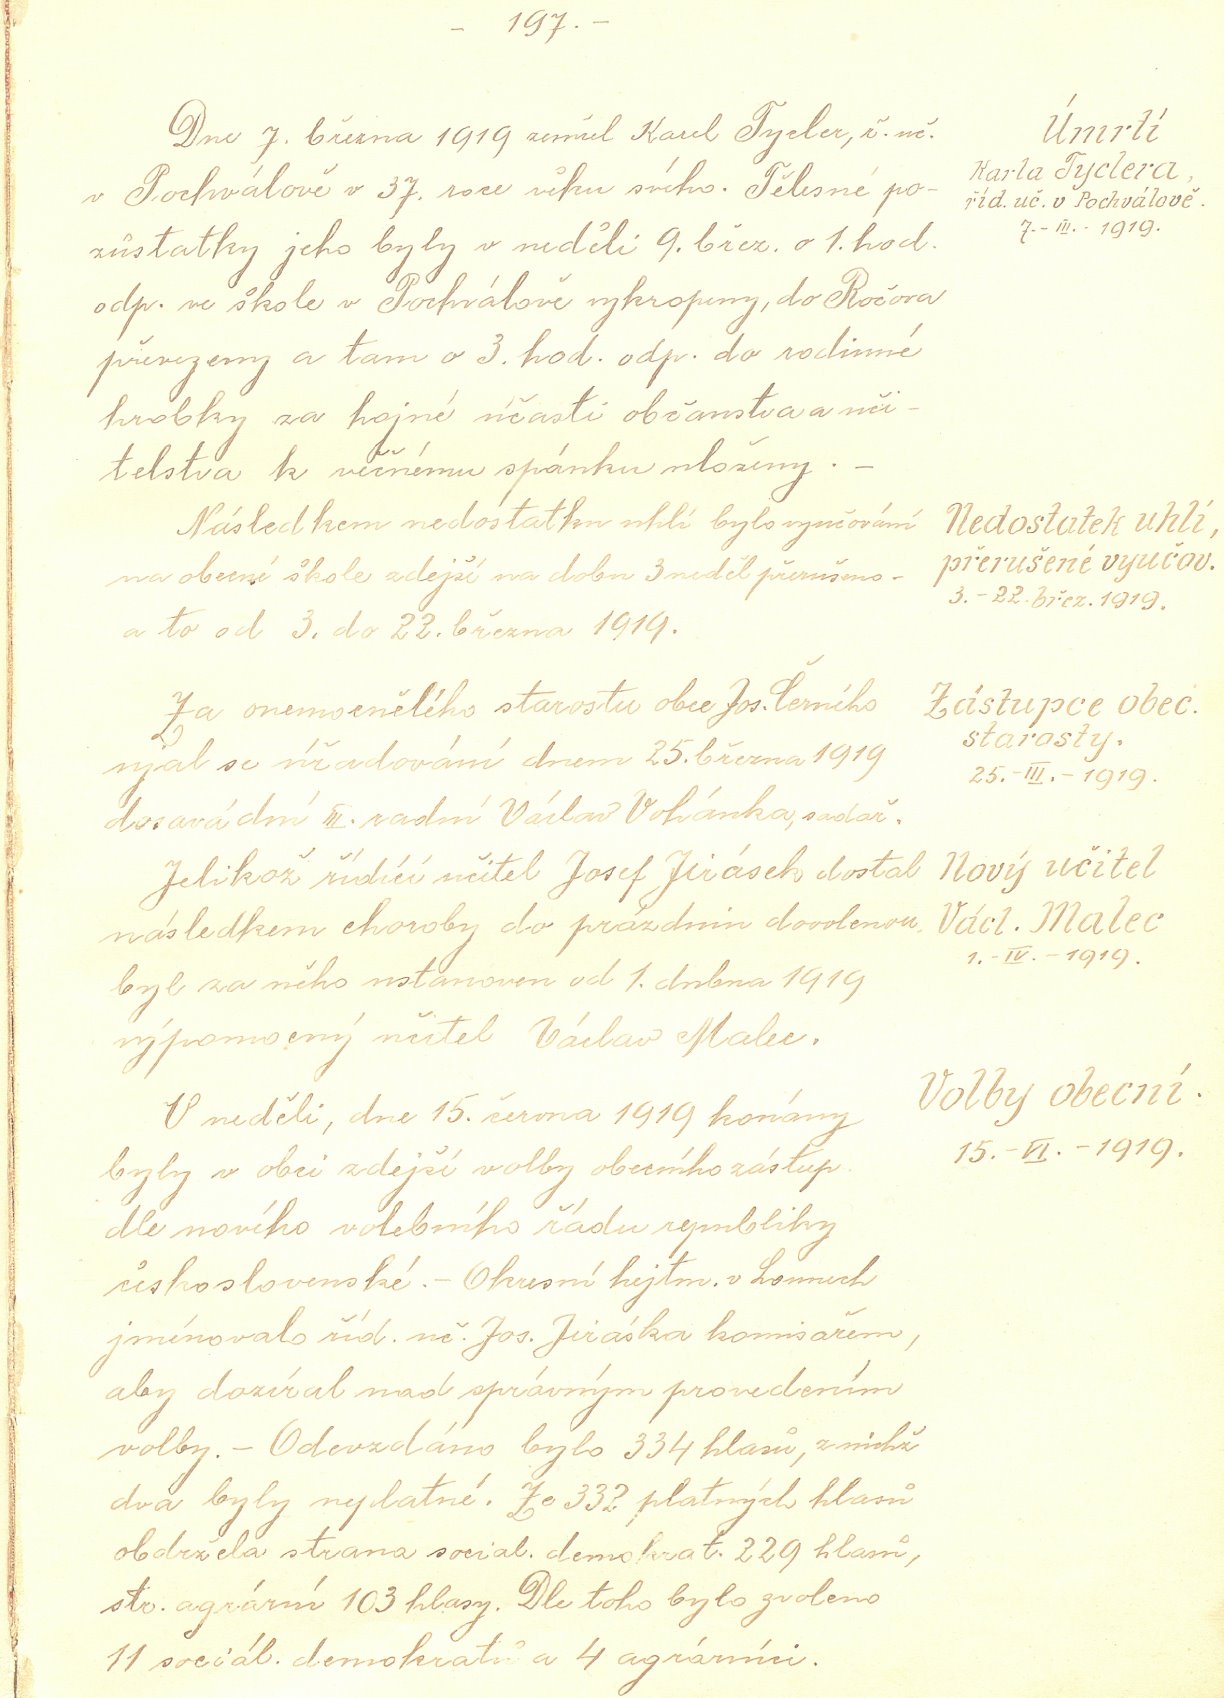 - 197. -
Dne 7. března 1919 zemřel Karel Tycler, ř. uč.
v Pochválově v 37. roce věku svého. Tělesné po-
zůstatky jeho byly v neděli 9. břez. o 1. hod.
odp. ve škole v Pochválově vykropeny, do Ročova
převezeny a tam o 3. hod. odp. do rodinné
hrobky za hojné účasti občanstva a uči-
telstva k věčnému spánku uloženy. -
Úmrtí
Karla Tyclera,
říd. uč. v Pochválově.
7. - III. - 1919.
Následkem nedostatku uhlí bylo vyučování
na obecné škole zdejší na dobu 3 neděl přerušeno -
a to od 3. do 22. března 1919.
Nedostatek uhlí,
přerušené vyučov.
3. - 22. břez. 1919.
Za onemocnělého starostu obce Jos. Černího
ujal se úřadování dnem 25. března 1919
dosavádní III. radní Václav Vohánka, sadař.
Zástupce obec.
starosty.
25. - III. - 1919.
Jelikož řídící učitel Josef Jirásek dostal
následkem choroby do prázdnin dovolenou,
byl za něho ustanoven od 1. dubna 1919
výpomocný učitel Václav Malec.
Nový učitel
Václ. Malec
1. - IV. - 1919.
V neděli, dne 15. června 1919 konány
byly v obci zdejší volby obecního zástup.
dle nového volebního řádu republiky
československé. - Okresní hejtm. v Lounech
jmenovalo říd. uč. Jos. Jiráska komisařem,
aby dozíral nad správným provedením
volby. - Odevzdáno bylo 334 hlasů, z nichž
dva byly neplatné. Ze 332 platných hlasů
obdržela strana social. demokrat. 229 hlasů,
str. agrární 103 hlasy. Dle toho bylo zvoleno
11 sociál. demokratů a 4 agrárníci.
Volby obecní.
15. - VI. - 1919.